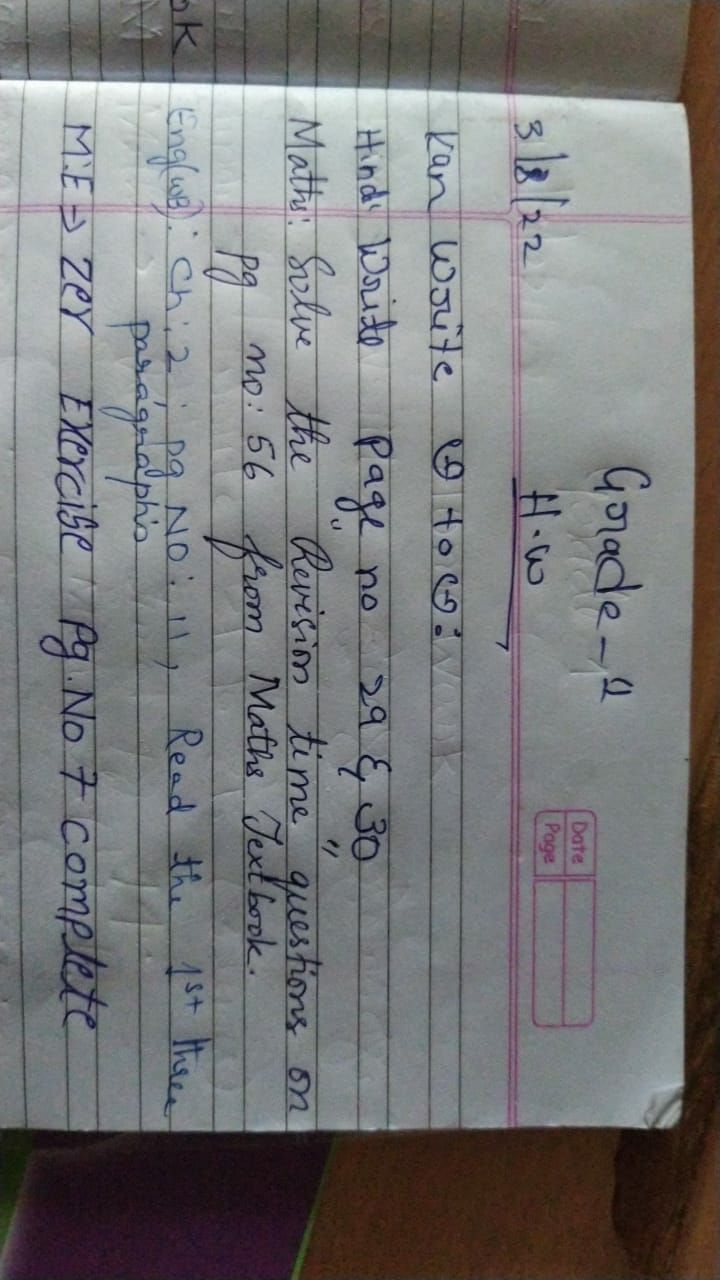 Grade-1
Date
Page
H.W
3/8/22
Kan Write ಅ to ಅ:
Hindi Write Page no 29 & 30
Maths: Solve the "Revision time" questions on
pg no: 56 from Maths Textbook.
Eng(WB): Ch: 2 : pg NO: 11, Read the 1st three
paragraphs
M.E → Zer Exercise Pg. No 7 complete